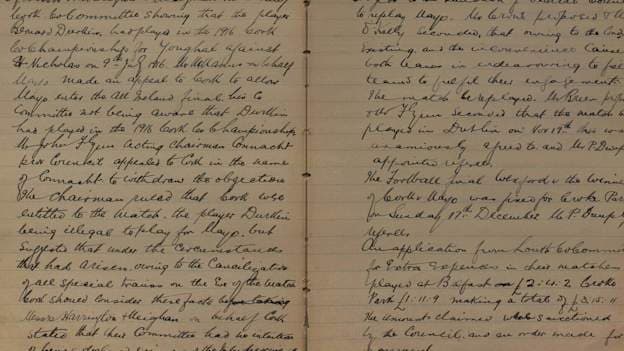 Co Committee showing that the player
Bernard Durkin, has played in the 1916 Cork
Co Championship for Youghal against
St Nicholas on 9th July. Mr McManus on behalf
Mayo made an appeal to Cork to allow
Mayo enter the All Ireland final, his Co
Committee not being aware that Durkin
had played in the 1916 Cork Co Championship
Mr John Flynn acting Chairman Connacht
prov Council appealed to Cork in the name
of Connacht to withdraw the objection
The Chairman ruled that Cork was
entitled to the match, the player Durkin
being illegal to play for Mayo, but
suggests that under the circumstances
that had arisen owing to the Cancellation
of all special trains on the Eve of the match
Cork should consider these facts
Messrs Harrington & Meighan on behalf Cork
stated that their Committee had no intention
to replay Mayo. Mr Crowe proposed &
O'Reilly seconded, that owing to the
existing, and the inconvenience
both teams in endeavouring to
teams to fulfil their engagement
The match be replayed. Mr Breen
Mr Flynn seconded that the match be
played in Dublin on Nov 19th this was
unanimously agreed to and Mr P. Dunphy
appointed referee.
The Football final Wexford v the winners
of Cork v Mayo was fixed for Croke Park
on Sunday 17th December Mr P. Dunphy
referee
An application from Louth Co Committee
for Extra Expenses in their matches
played at Belfast £2:4.2 Croke
Park £1:11.9 making a total of £3.15.11
the amount claimed was sanctioned
by the Council, and an order made for